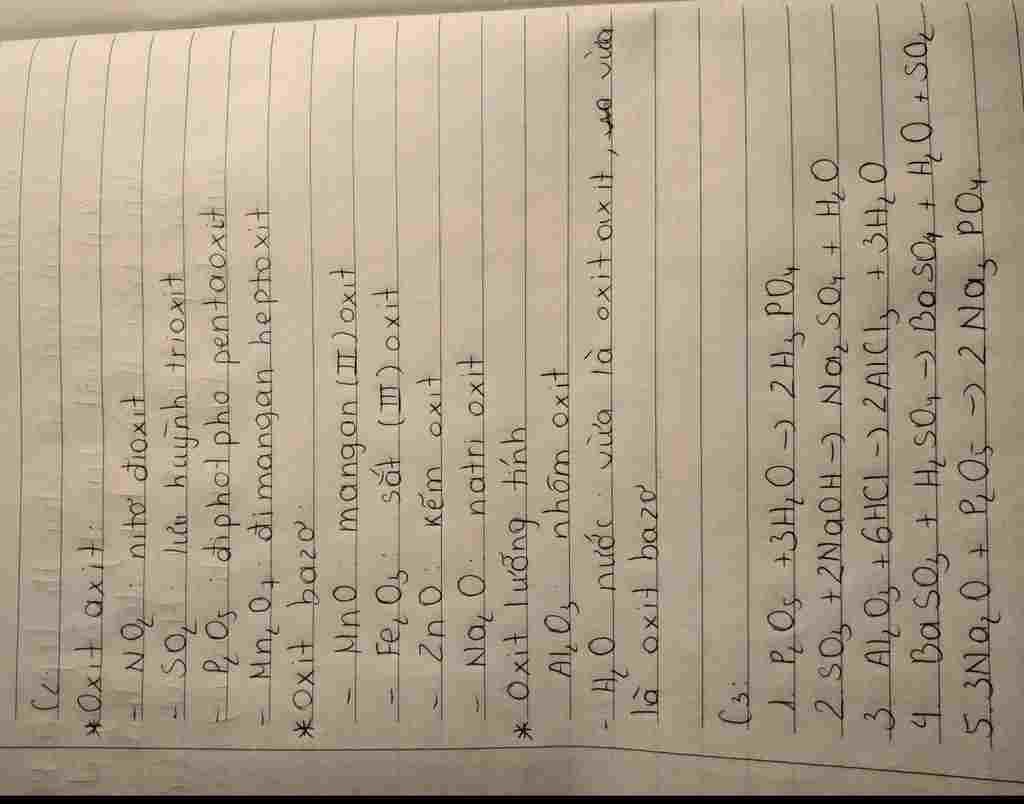 C2:
* Oxit axit:
- NO2: nitơ đioxit
- SO2: lưu huỳnh trioxit
- P2O5: điphotpho pentaoxit
- Mn2O7: đimangan heptoxit
* Oxit bazơ:
- MnO: mangan (II) oxit
- Fe2O3: sắt (III) oxit
- ZnO: kẽm oxit
- Na2O: natri oxit
* Oxit lưỡng tính
Al2O3: nhôm oxit
- H2O nước: vừa là oxit axit, vừa
là oxit bazơ
C3:
1 P2O5 + 3H2O -> 2H3PO4
2 SO3 + 2NaOH -> Na2SO4 + H2O
3 Al2O3 + 6HCl -> 2AlCl3 + 3H2O
4 BaSO3 + H2SO4 -> BaSO4 + H2O + SO2
5. 3Na2O + P2O5 -> 2Na3PO4